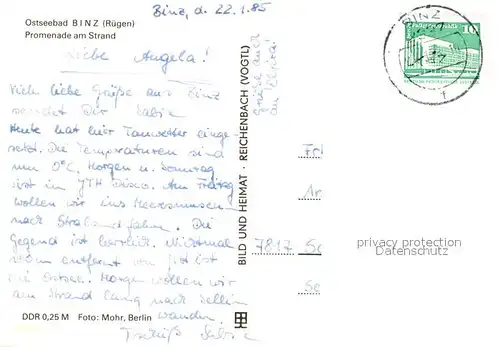 Ostseebad BINZ (Rügen)
Promenade am Strand
Binz, d. 22.1.85
Liebe Angela!
Viele liebe Grüße aus Binz
sendet Dir Sabine
Heute hat hier Tauwetter einge-
setzt. Die Temperaturen sind
um 0°C. Morgen u. Sonntag
ist in JTH Disco. Am Freitag
wollen wir ins Meeresmuseum
nach Stralsund fahren. Die
Gegend ist herrlich.
entfernt von ist
die Ostsee. Morgen wollen wir
am Strand lang nach Sellin
wandern.
Tschüß Sabine
Grüße auch
an
BILD UND HEIMAT · REICHENBACH (VOGTL)
DDR 0,25 M Foto: Mohr, Berlin
BINZ
10
7817 Sc
privacy protection
Datenschutz